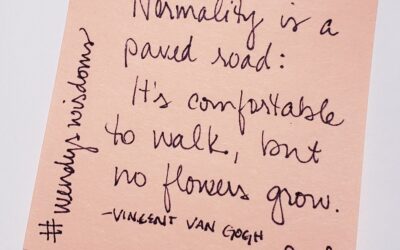 Normality is a
paved road:
It's comfortable
to walk, but
no flowers grow.
-VINCENT VAN GOGH
#wendyswisdoms